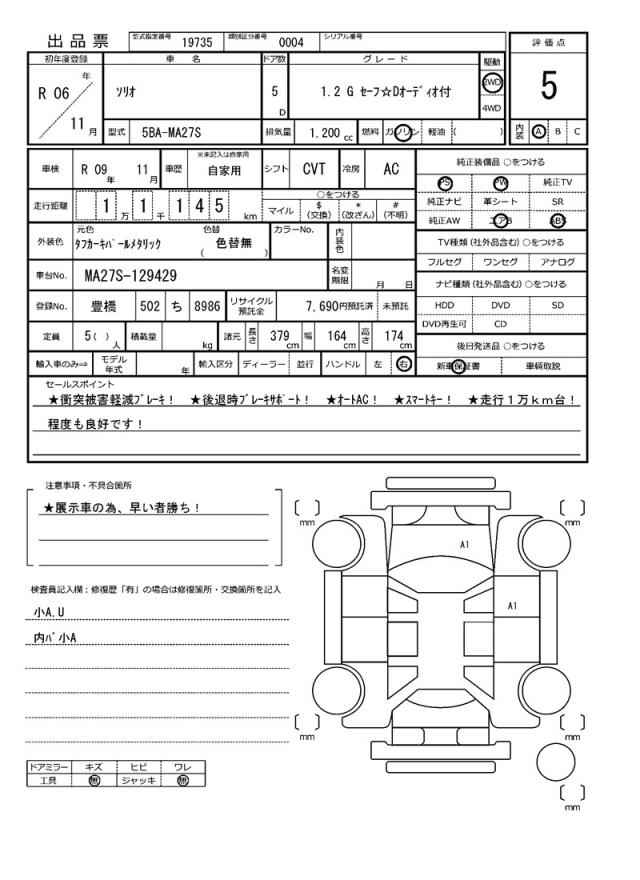 出品票
型式指定番号 19735 類別区分番号 0004 シリアル番号
評価点
5
内装 A B C
初年度登録 車名 ドア数 グレード 駆動
R 06 年 11 月
ソリオ
5 D
1.2 G セーフ☆Dオーディオ付
2WD
4WD
型式 5BA-MA27S 排気量 1.200 cc 燃料 ガソリン 軽油 ( )
車検 R 09 年 11 月 車歴 ※未記入は自家用 自家用 シフト CVT 冷房 AC
走行距離 1 万 1 千 1 4 5 km
○をつける
マイル $(交換) *(改ざん) #(不明)
外装色 元色 タフカーキパールメタリック 色替 ( 色替無 ) カラーNo. 内装色
車台No. MA27S-129429 名変期限 月 日
登録No. 豊橋 502 ち 8986 リサイクル預託金 7,690円預託済 未預託
定員 5( ) 人 積載量 kg 諸元 長さ 379 cm 幅 164 cm 高さ 174 cm
輸入車のみ⇒ モデル年式 年 輸入区分 ディーラー 並行 ハンドル 左 右
純正装備品 ○をつける
PS PW 純正TV
純正ナビ 革シート SR
純正AW エアB ABS
TV種類(社外品含む)○をつける
フルセグ ワンセグ アナログ
ナビ種類(社外品含む)○をつける
HDD DVD SD
DVD再生可 CD
後日発送品 ○をつける
新車保証書 車輌取説
セールスポイント
★衝突被害軽減ブレーキ! ★後退時ブレーキサポート! ★オートAC! ★スマートキー! ★走行1万km台!
程度も良好です!
注意事項・不具合箇所
★展示車の為、早い者勝ち!
検査員記入欄:修復歴「有」の場合は修復箇所・交換箇所を記入
小A.U
内バ小A
ドアミラー キズ ヒビ ワレ
工具 無 ジャッキ 無
[ ] mm
[ ] mm
A1
A1
[ ] mm
[ ] mm
[ ] mm